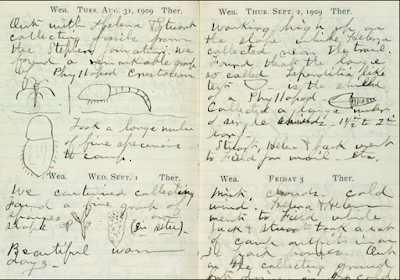 Wea. TUES. AUG. 31, 1909 Ther.
Out with Helena & Stuart
collecting fossils from
the Stephen formation. We
found a remarkable group
of Phyllopod Crustaceans
Took a large number
of fine specimens
to camp.
Wea. WED. SEPT. 1 Ther.
We continued collecting
found a fine group of
sponges on
slope
(in situ).
Beautiful warm
days
Wea. THUR. SEPT. 2, 1909 Ther.
Working high up on
the slope while Helena
collected near the trail.
Found that the large
so called Leperditia like
test is the shield
of a Phyllopod
Collected a large number
of
long.
Stuart, Helen & Jack went
to Field for mail etc.
Wea. FRIDAY 3 Ther.
cold
wind. Helena & Helen
went to Field while
Jack & Stuart took a lot
of camp outfit
Out
on the collecting ground